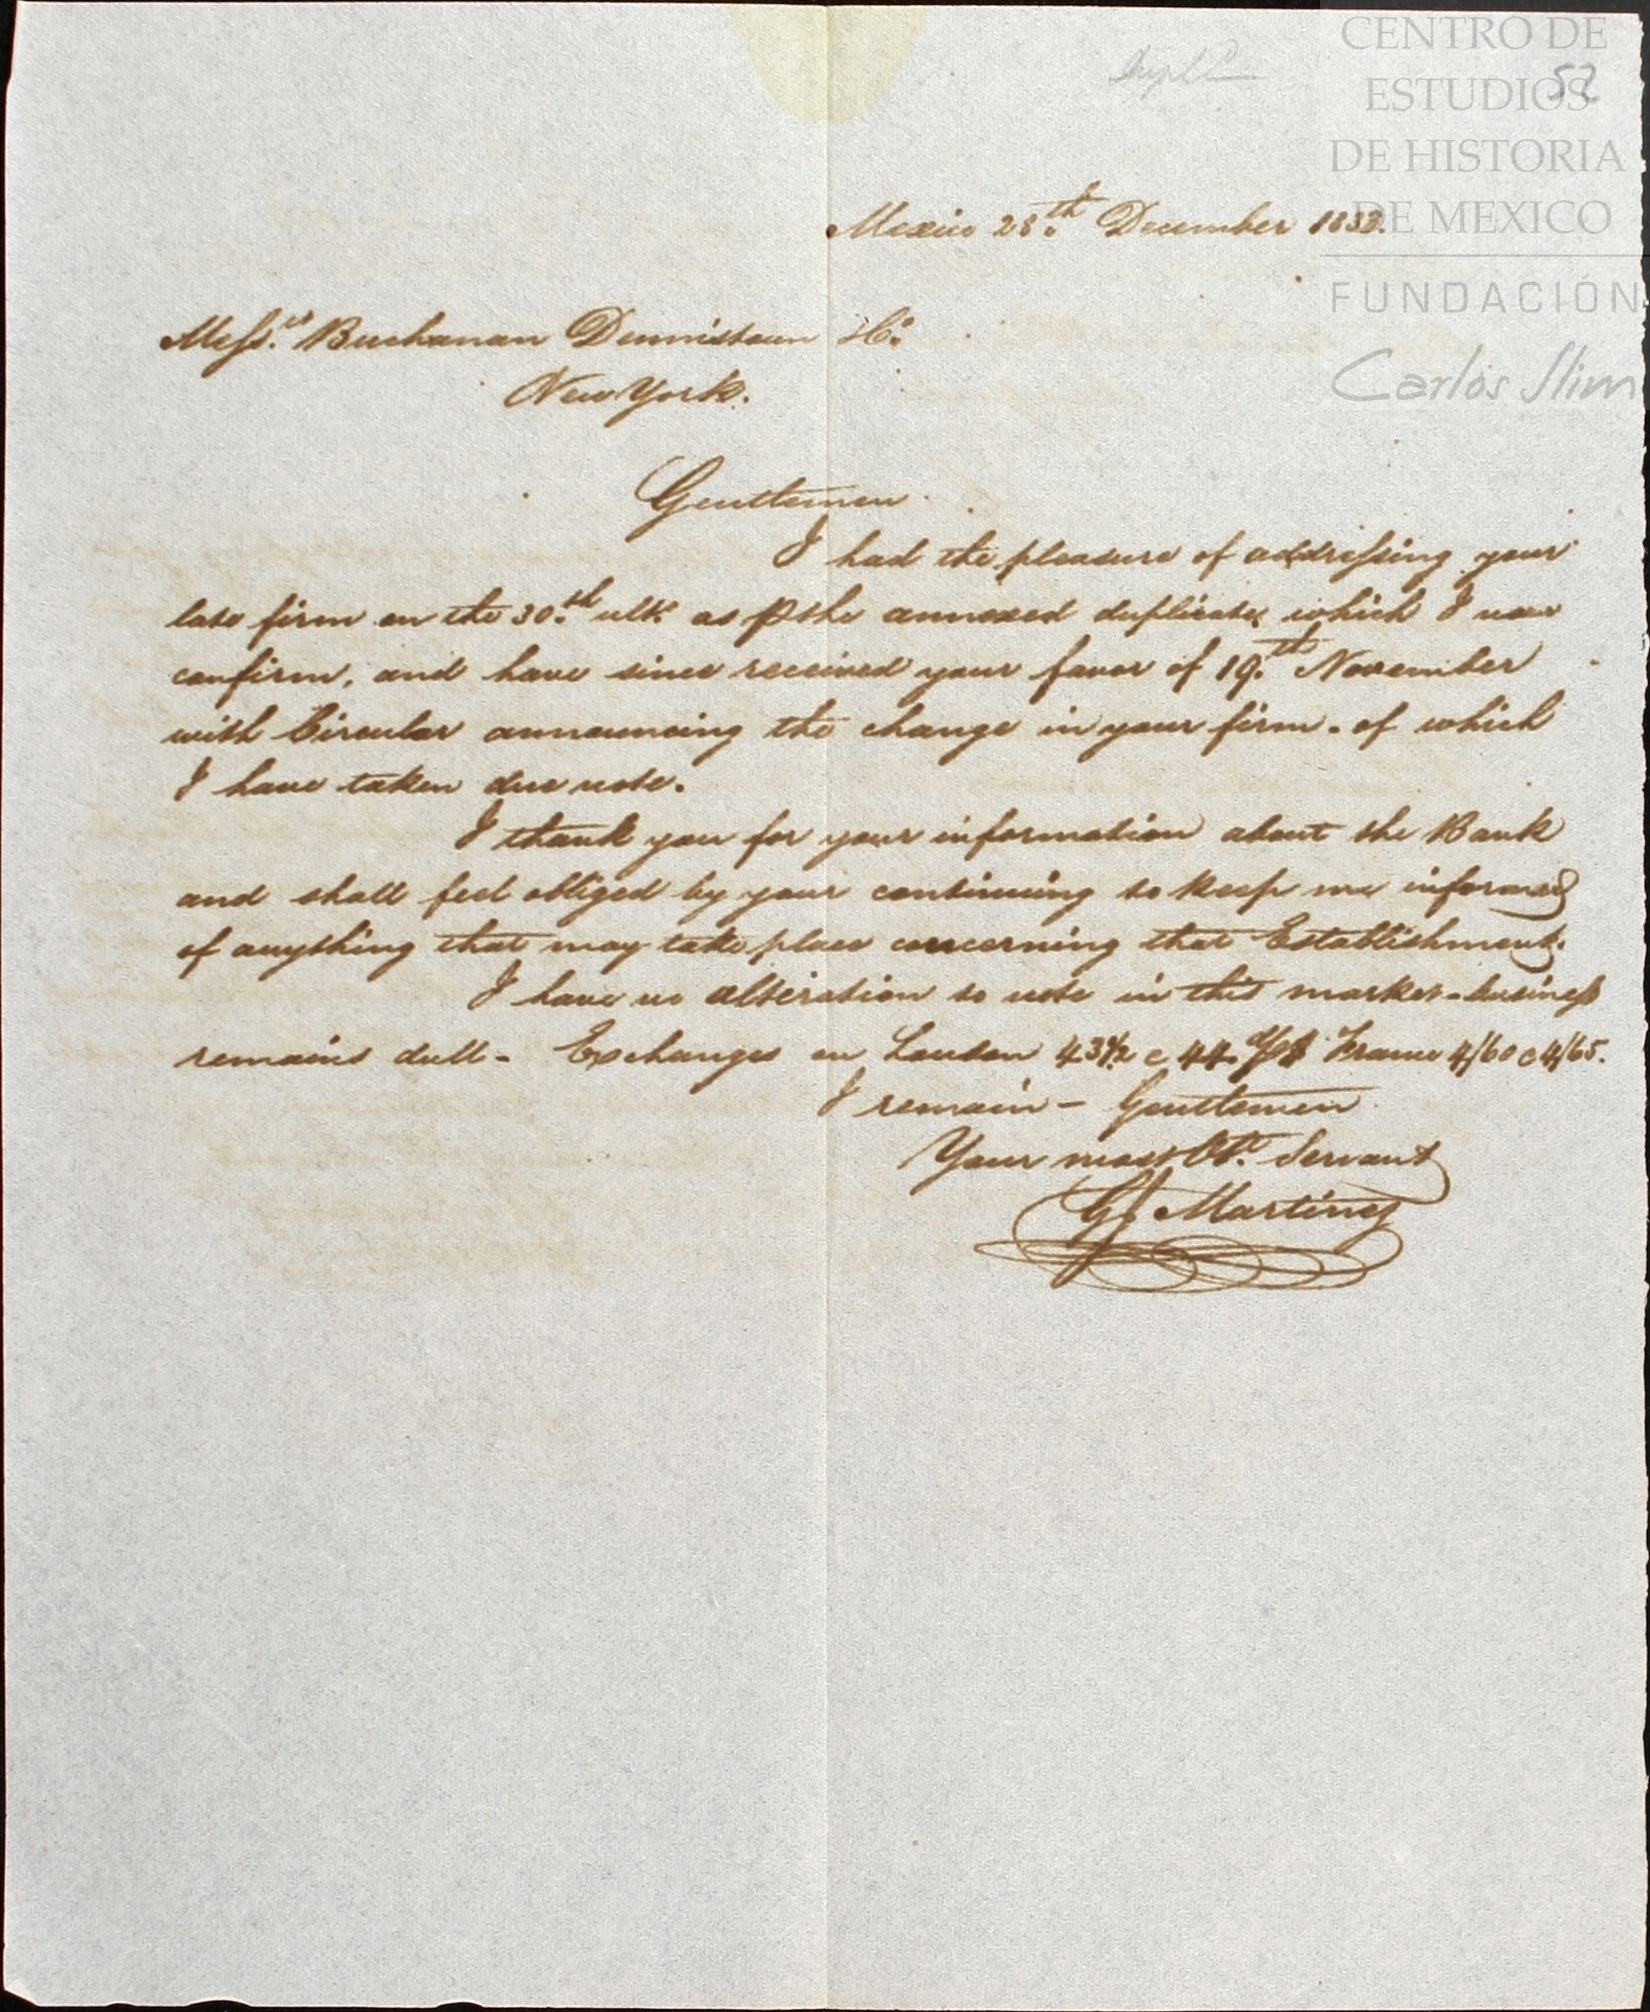 CENTRO DE
ESTUDIOS
52
DE HISTORIA
DE MEXICO
FUNDACIÓN
Carlos Slim
Mexico 28th December 183
Messrs. Buchanan Dennistoun & Co.
New York.
Gentlemen
I had the pleasure of addressing your
late firm on the 30th ulto. as p the annexed duplicate, which I now
confirm, and have since received your favor of 19th November
with Circular announcing the change in your firm. of which
I have taken due note.
I thank you for your information about the Bank
and shall feel obliged by your continuing to keep me informed
of anything that may take place concerning that Establishment.
I have no alteration to note in this market - business
remains dull - Exchanges on London 43 1/2 @ 44 France 4/60 @ 4/65.
I remain - Gentlemen
Your most Obt. Servant
G J Martinez